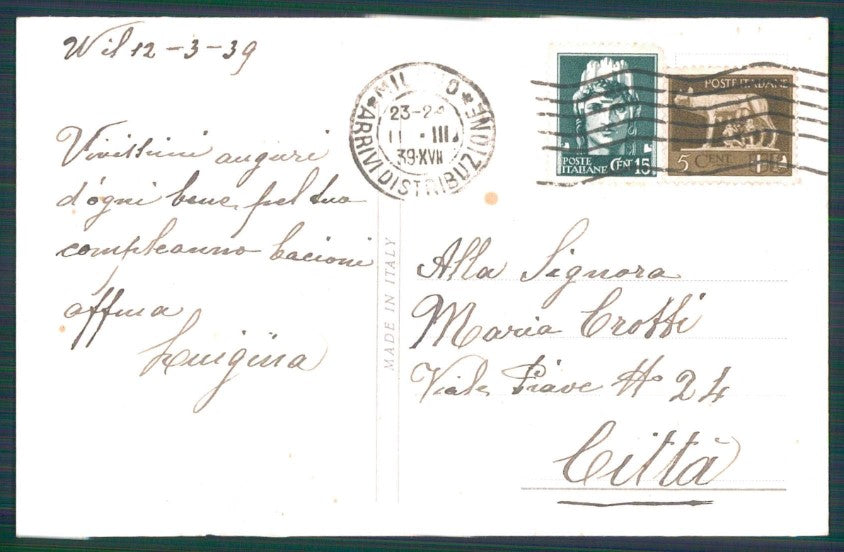 Mil 12-3-39
Vivissimi auguri
d'ogni bene pel tuo
compleanno bacioni
affma
Luigina
MILANO
23-2
11 · III
39·XVII
ARRIVI DISTRIBUZIONE
POSTE
ITALIANE CENT 15
POSTE ITALIANE
5 CENT.
MADE IN ITALY
Alla Signora
Maria Crotti
Viale Piave N 24
Città